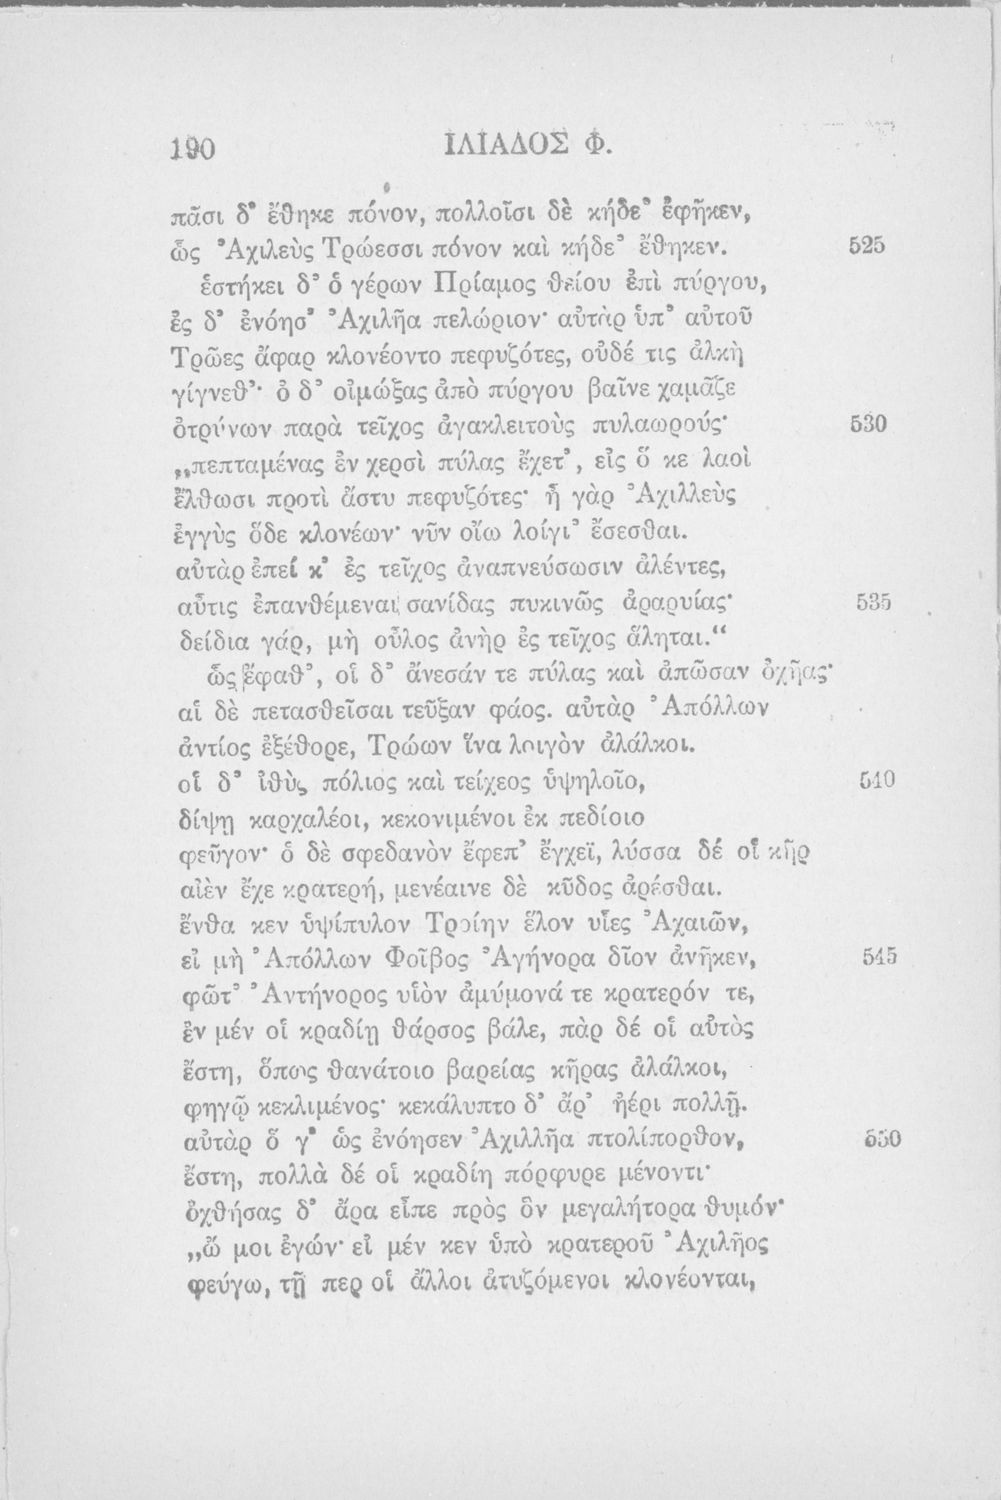 190 ΙΛΙΑΔΟΣ Φ.
πᾶσι δ’ ἔθηκε πόνον, πολλοῖσι δὲ κήδε’ ἐφῆκεν,
ὣς Ἀχιλεὺς Τρώεσσι πόνον καὶ κήδε’ ἔθηκεν. 525
ἑστήκει δ’ ὁ γέρων Πρίαμος θείου ἐπὶ πύργου,
ἐς δ’ ἐνόησ’ Ἀχιλῆα πελώριον· αὐτὰρ ὑπ’ αὐτοῦ
Τρῶες ἄφαρ κλονέοντο πεφυζότες, οὐδέ τις ἀλκὴ
γίγνεθ’· ὁ δ’ οἰμώξας ἀπὸ πύργου βαῖνε χαμᾶζε
ὀτρύνων παρὰ τεῖχος ἀγακλειτοὺς πυλαωρούς· 530
„πεπταμένας ἐν χερσὶ πύλας ἔχετ’, εἰς ὅ κε λαοὶ
ἔλθωσι προτὶ ἄστυ πεφυζότες· ἦ γὰρ Ἀχιλλεὺς
ἐγγὺς ὅδε κλονέων· νῦν οἴω λοίγι’ ἔσεσθαι.
αὐτὰρ ἐπεί κ’ ἐς τεῖχος ἀναπνεύσωσιν ἀλέντες,
αὖτις ἐπανθέμεναι σανίδας πυκινῶς ἀραρυίας· 535
δείδια γάρ, μὴ οὖλος ἀνὴρ ἐς τεῖχος ἅληται.“
ὣς ἔφαθ’, οἱ δ’ ἄνεσάν τε πύλας καὶ ἀπῶσαν ὀχῆας·
αἱ δὲ πετασθεῖσαι τεῦξαν φάος. αὐτὰρ Ἀπόλλων
ἀντίος ἐξέθορε, Τρώων ἵνα λοιγὸν ἀλάλκοι.
οἱ δ’ ἰθὺς πόλιος καὶ τείχεος ὑψηλοῖο, 540
δίψῃ καρχαλέοι, κεκονιμένοι ἐκ πεδίοιο
φεῦγον· ὁ δὲ σφεδανὸν ἔφεπ’ ἔγχεϊ, λύσσα δέ οἱ κῆρ
αἰὲν ἔχε κρατερή, μενέαινε δὲ κῦδος ἀρέσθαι.
ἔνθα κεν ὑψίπυλον Τροίην ἕλον υἷες Ἀχαιῶν,
εἰ μὴ Ἀπόλλων Φοῖβος Ἀγήνορα δῖον ἀνῆκεν, 545
φῶτ’ Ἀντήνορος υἱὸν ἀμύμονά τε κρατερόν τε,
ἐν μέν οἱ κραδίῃ θάρσος βάλε, πὰρ δέ οἱ αὐτὸς
ἔστη, ὅπως θανάτοιο βαρείας κῆρας ἀλάλκοι,
φηγῷ κεκλιμένος· κεκάλυπτο δ’ ἄρ’ ἠέρι πολλῇ.
αὐτὰρ ὅ γ’ ὡς ἐνόησεν Ἀχιλλῆα πτολίπορθον, 550
ἔστη, πολλὰ δέ οἱ κραδίη πόρφυρε μένοντι·
ὀχθήσας δ’ ἄρα εἶπε πρὸς ὃν μεγαλήτορα θυμόν·
„ὤ μοι ἐγών· εἰ μέν κεν ὑπὸ κρατεροῦ Ἀχιλῆος
φεύγω, τῇ περ οἱ ἄλλοι ἀτυζόμενοι κλονέονται,